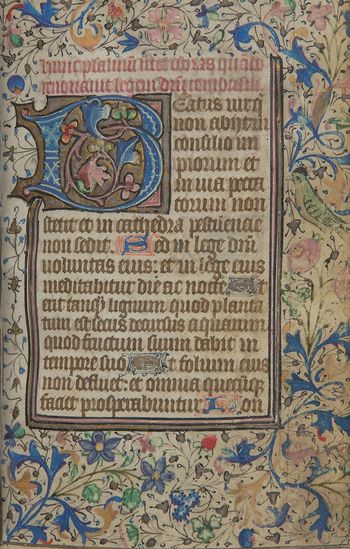 Beatus vir q
non abijt in
consilio im
piorum et
in uia pecca
torum non
stetit et in cathedra pestilencie
non sedit Sed in lege dni
uoluntas eius: et in lege eius
meditabitur die ac nocte Et
erit tanq̃ lignum quod planta
tum est secus decursus aquarum
quod fructum suum dabit in
tempore suo Et folium eius
non defluet: et omnia quecūq
faciet prosperabuntur Non